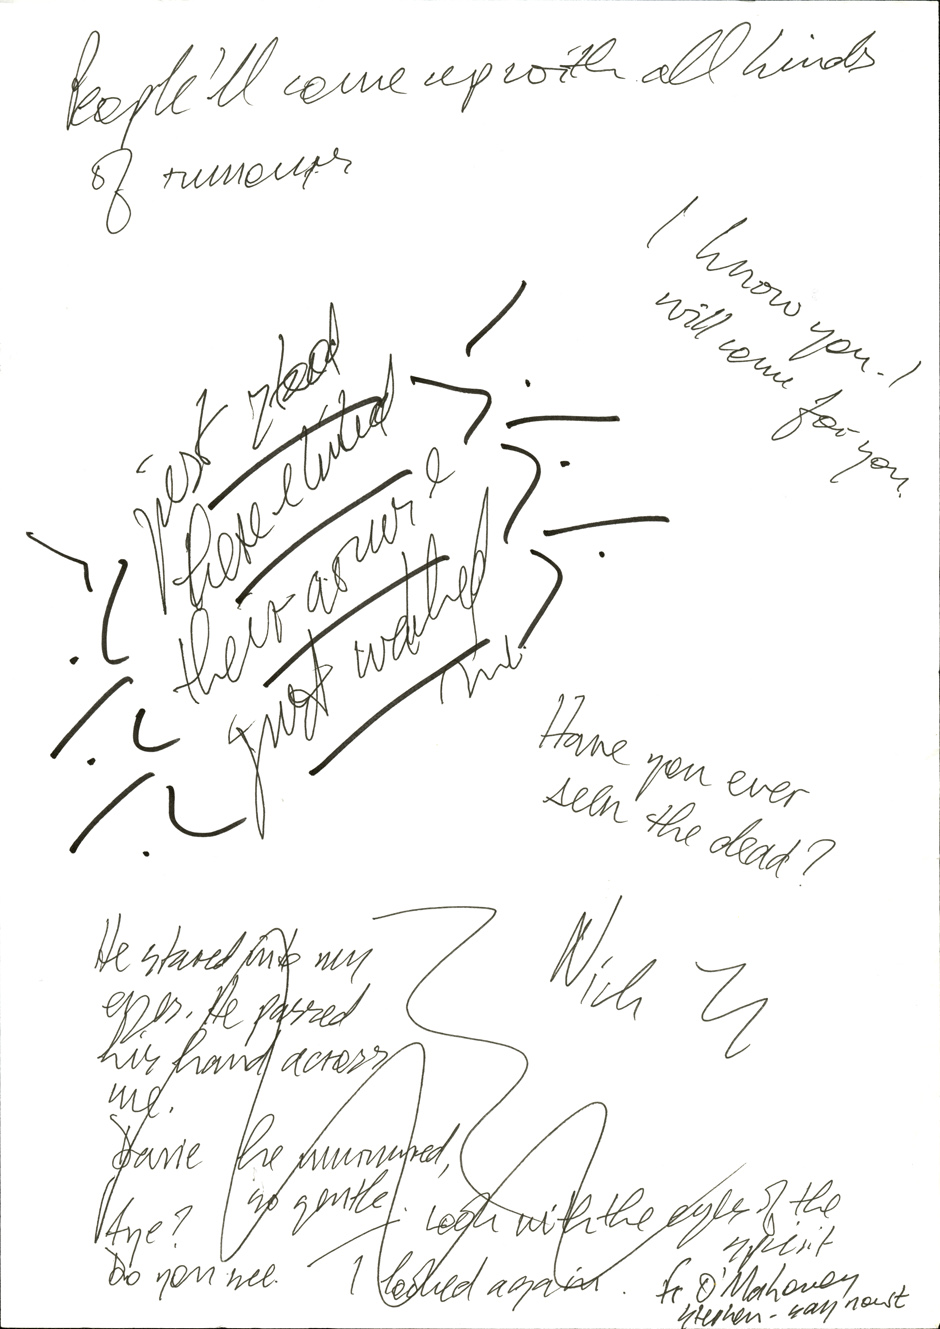 People'll come up with all kinds
of rumours
I know you. I
will come for you.
just stood
there & lifted
their arms &
just watched
me.
Have you ever
seen the dead?
Nick
He stared into my
eyes. He passed
his hand across
me.
Davie he murmured,
so gentle.
Aye?
Look with the eyes of the
spirit
Do you see.
I looked again.
Fr O'Mahoney
Stephen - say nowt